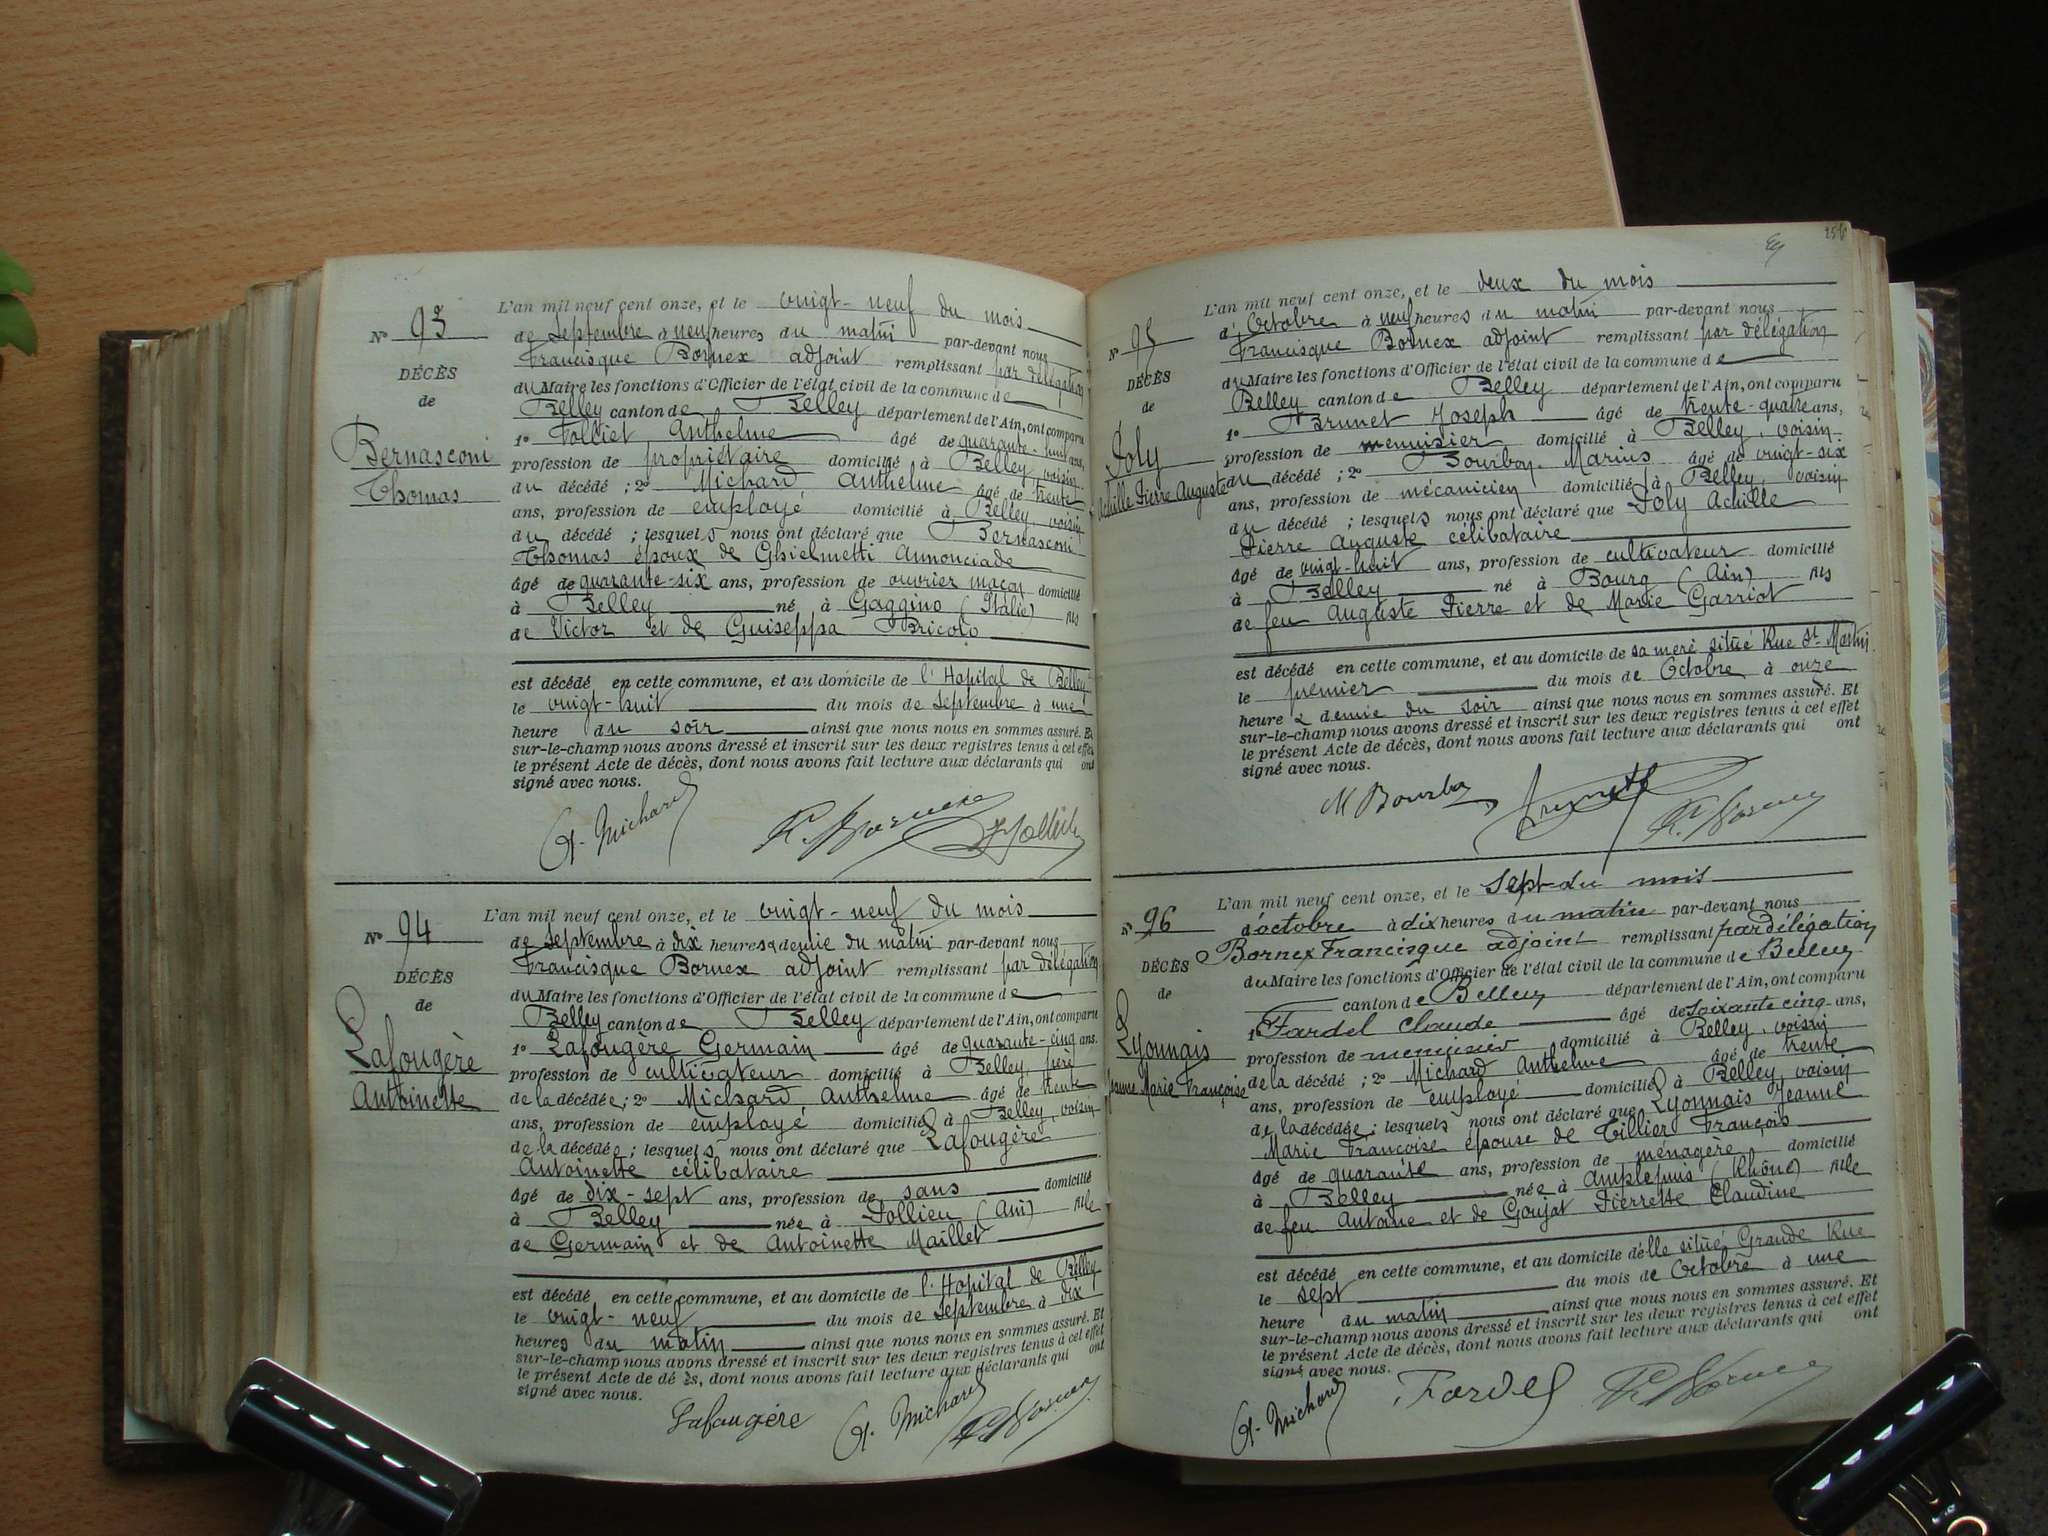 L'an mil neuf cent onze, et le vingt-neuf du mois
N° 93 de Septembre à neuf heures du matin par-devant nous
Francisque Bornex adjoint remplissant par délégation
DÉCÈS du Maire les fonctions d'Officier de l'état civil de la commune de
de Belley canton de Belley département de l'Ain, ont comparu
1° Folliet Anthelme âgé de quarante-huit ans,
Bernasconi profession de propriétaire domicilié à Belley, voisin
Thomas du décédé ; 2° Michard Anthelme âgé de trente
ans, profession de employé domicilié à Belley, voisin
du décédé ; lesquels nous ont déclaré que Bernasconi
Thomas époux de Ghielmetti Annonciade
âgé de quarante-six ans, profession de ouvrier maçon domicilié
à Belley né à Gaggino (Italie) fils
de Victor et de Guiseppa Bricolo
est décédé en cette commune, et au domicile de l'Hopital de Belley
le vingt-huit du mois de Septembre à une
heure du soir ainsi que nous nous en sommes assuré. Et
sur-le-champ nous avons dressé et inscrit sur les deux registres tenus à cet effet
le présent Acte de décès, dont nous avons fait lecture aux déclarants qui ont
signé avec nous.
A. Michard F. Bornex Folliet
L'an mil neuf cent onze, et le vingt-neuf du mois
N° 94 de Septembre à dix heures & demie du matin par-devant nous
Francisque Bornex adjoint remplissant par délégation
DÉCÈS du Maire les fonctions d'Officier de l'état civil de la commune de
de Belley canton de Belley département de l'Ain, ont comparu
1° Lafougère Germain âgé de quarante-cinq ans,
Lafougère profession de cultivateur domicilié à Belley, père
Antoinette de la décédée ; 2° Michard Anthelme âgé de trente
ans, profession de employé domicilié à Belley, voisin
de la décédée ; lesquels nous ont déclaré que Lafougère
Antoinette célibataire
âgé de dix-sept ans, profession de sans domicilié
à Belley née à Pollieu (Ain) fille
de Germain et de Antoinette Maillet
est décédé en cette commune, et au domicile de l'Hopital de Belley
le vingt-neuf du mois de Septembre à dix
heures du matin ainsi que nous nous en sommes assuré. Et
sur-le-champ nous avons dressé et inscrit sur les deux registres tenus à cet effet
le présent Acte de dé ès, dont nous avons fait lecture aux déclarants qui ont
signé avec nous.
Lafougère A. Michard F. Bornex
L'an mil neuf cent onze, et le deux du mois
N° 95 d'Octobre à neuf heures du matin par-devant nous
Francisque Bornex adjoint remplissant par délégation
DÉCÈS du Maire les fonctions d'Officier de l'état civil de la commune de
de Belley canton de Belley département de l'Ain, ont comparu
1° Brunet Joseph âgé de trente-quatre ans,
Joly profession de menuisier domicilié à Belley, voisin
Achille Pierre Auguste du décédé ; 2° Bourbon Marius âgé de vingt-six
ans, profession de mécanicien domicilié à Belley, voisin
du décédé ; lesquels nous ont déclaré que Joly Achille
Pierre Auguste célibataire
âgé de vingt-huit ans, profession de cultivateur domicilié
à Belley né à Bourg (Ain) fils
de feu Auguste Pierre et de Marie Garriot
est décédé en cette commune, et au domicile de sa mère situé Rue St Martin
le premier du mois de Octobre à onze
heure & demie du soir ainsi que nous nous en sommes assuré. Et
sur-le-champ nous avons dressé et inscrit sur les deux registres tenus à cet effet
le présent Acte de décès, dont nous avons fait lecture aux déclarants qui ont
signé avec nous.
M Bourbon Brunet F. Bornex
L'an mil neuf cent onze, et le Sept du mois
N° 96 d'octobre à dix heures du matin par-devant nous
Bornex Francisque adjoint remplissant par délégation
DÉCÈS du Maire les fonctions d'Officier de l'état civil de la commune de Belley
de canton de Belley département de l'Ain, ont comparu
1° Fardel Claude âgé de soixante cinq ans,
Lyonnais profession de menuisier domicilié à Belley, voisin
Jeanne Marie Françoise de la décédé ; 2° Michard Anthelme âgé de trente
ans, profession de employé domicilié à Belley, voisin
de la décédée ; lesquels nous ont déclaré que Lyonnais Jeanne
Marie Françoise épouse de Tillier François
âgé de quarante ans, profession de ménagère domicilié
à Belley née à Amplepuis (Rhône) fille
de feu Antoine et de Goujat Pierrette Claudine
est décédé en cette commune, et au domicile d'elle situé Grande Rue
le sept du mois de Octobre à une
heure du matin ainsi que nous nous en sommes assuré. Et
sur-le-champ nous avons dressé et inscrit sur les deux registres tenus à cet effet
le présent Acte de décès, dont nous avons fait lecture aux déclarants qui ont
signé avec nous.
A. Michard Fardel F. Bornex